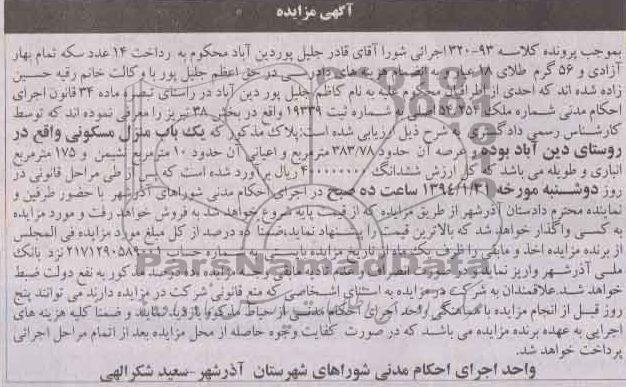 آگهی مزایده
بموجب پرونده کلاسه ۹۳-۳۲۰ اجرائی شورا آقای قادر جلیل پوردین آباد محکوم به رداخت ۱۴ عدد سکه تمام بهار
آزادی و ۵۶ گرم طلای ۱۸ عیار به انضمام هزینه های دادرسی در حق اعظم جلیل پور با وکالت خانم رقیه حسین
زاده شده اند که احدی از اطرافیان محکوم علیه به نام کاظم جلیل پور دین آباد در راستای تبصره ماده ۳۴ قانون اجرای
احکام مدنی شماره ملک اصلی به شماره ثبت ۱۹۳۳۹ واقع در بخش ۳۸ تبریز را معرفی نموده اند که توسط
کارشناس رسمی دادگستری به شرح ذیل ارزیابی شده است: پلاک مذکور که یک باب منزل مسکونی واقع در
روستای دین آباد بوده و عرصه آن حدود ۳۸۳/۷۸ مترمربع و اعیانی آن حدود ۱۰ مترمربع نشیمن و ۱۷۵ مترمربع
انباری و طویله می باشد که کل ارزش ششدانگ ریال برآورد شده است که پس از طی مراحل قانونی در
روز دوشنبه مورخه ۱۳۹۴/۱/۳۱ ساعت ده صبح در اجرای احکام مدنی شوراهای آذرشهر با حضور طرفین و
نماینده محترم دادستان آذرشهر از طریق مزایده که از قیمت پایه شروع خواهد شد به فروش خواهد رفت و مورد مزایده
به کسی واگذار خواهد شد که بالاترین قیمت را پیشنهاد نماید، ضمنا ده درصد از کل مبلغ مورد مزایده فی المجلس
از برنده مزایده اخذ و مابقی را ظرف یک ماه از تاریخ مزایده بایستی به شماره حساب ۲۱۷۱۲۹۰۵۸۹۰۰۶ نزد بانک
ملی آذرشهر واریز نماید، در صورت انصراف و عدم تادیه مابقی وجه مزایده ده درصد مذکور به نفع دولت ضبط
خواهد شد. علاقمندان به شرکت در مزایده به استثنای اشخاصی که منع قانونی شرکت در مزایده دارند می توانند پنج
روز قبل از انجام مزایده با هماهنگی واحد اجرای احکام مدنی از حیاط مذکور بازدید نمایند و ضمنا کلیه هزینه های
اجرایی به عهده برنده مزایده می باشد که در صورت کفایت وجوه حاصله از محل مزایده بعد از اتمام مراحل اجرائی
پرداخت خواهد شد.
واحد اجرای احکام مدنی شوراهای شهرستان آذرشهر -سعید شکرالهی
ParsNamadData